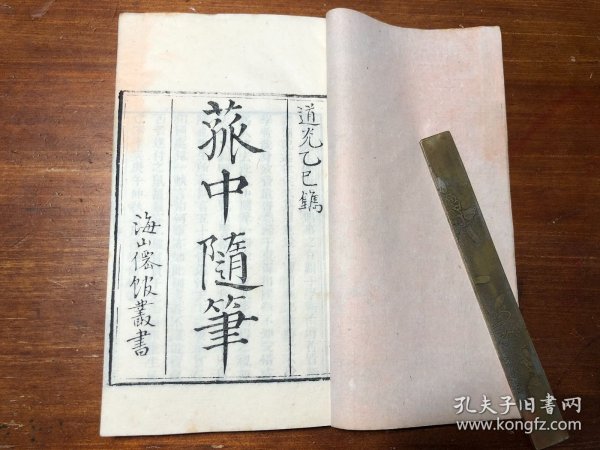 道光乙巳鐫
菰中隨筆
海山僊館叢書
孔夫子旧書网
www.kongfz.com